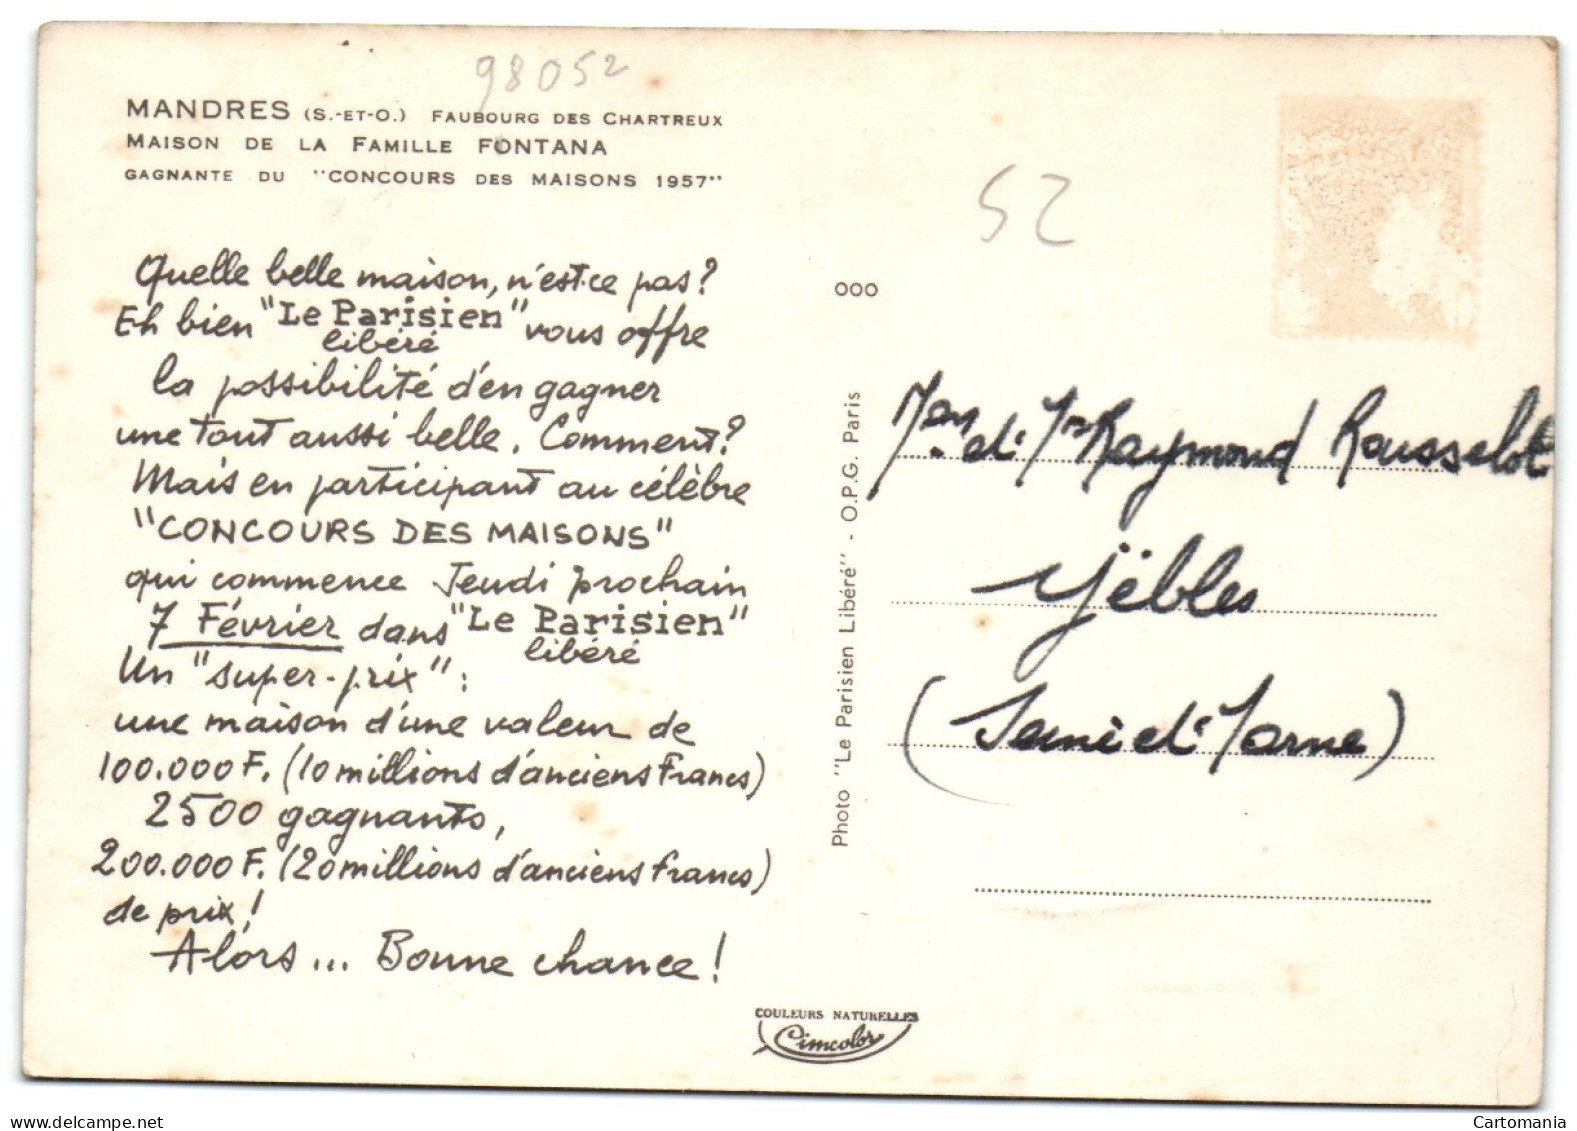 98052
MANDRES (S.-ET-O.) FAUBOURG DES CHARTREUX
MAISON DE LA FAMILLE FONTANA
GAGNANTE DU "CONCOURS DES MAISONS 1957"
Quelle belle maison, n'est-ce pas?
Eh bien "Le Parisien" vous offre
libéré
la possibilité d'en gagner
une tout aussi belle. Comment?
Mais en participant au célèbre
"CONCOURS DES MAISONS"
qui commence Jeudi prochain
7 Février dans "Le Parisien"
libéré
Un "super-prix" :
une maison d'une valeur de
100.000 F. (10 millions d'anciens Francs)
2500 gagnants,
200.000 F. (20 millions d'anciens Francs)
de prix!
Alors ... Bonne chance!
COULEURS NATURELLES
Cimcolor
Photo "Le Parisien Libéré" - O.P.G. Paris
000
52
Raymond Rousselot
Yèbles
Cartomania